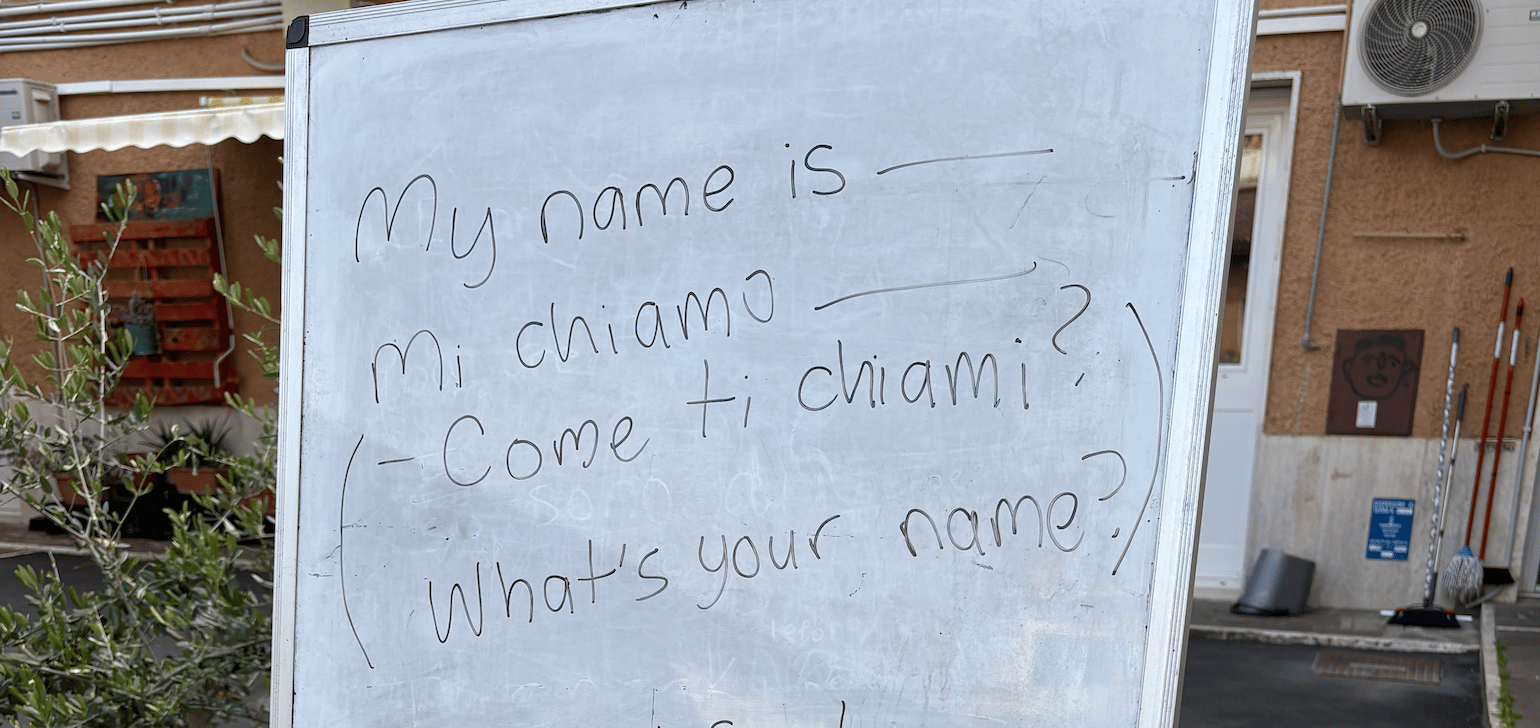 My name is ____
Mi chiamo ____
(- Come ti chiami?
What's your name?)